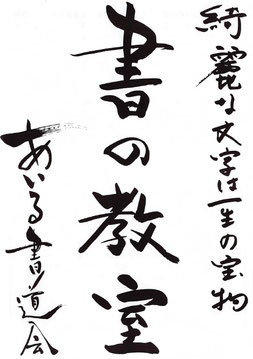 綺麗な文字は一生の宝物
書の教室
あいる書道会